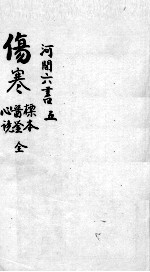 河間六書 五
傷寒
標本
醫鑒
心法
全